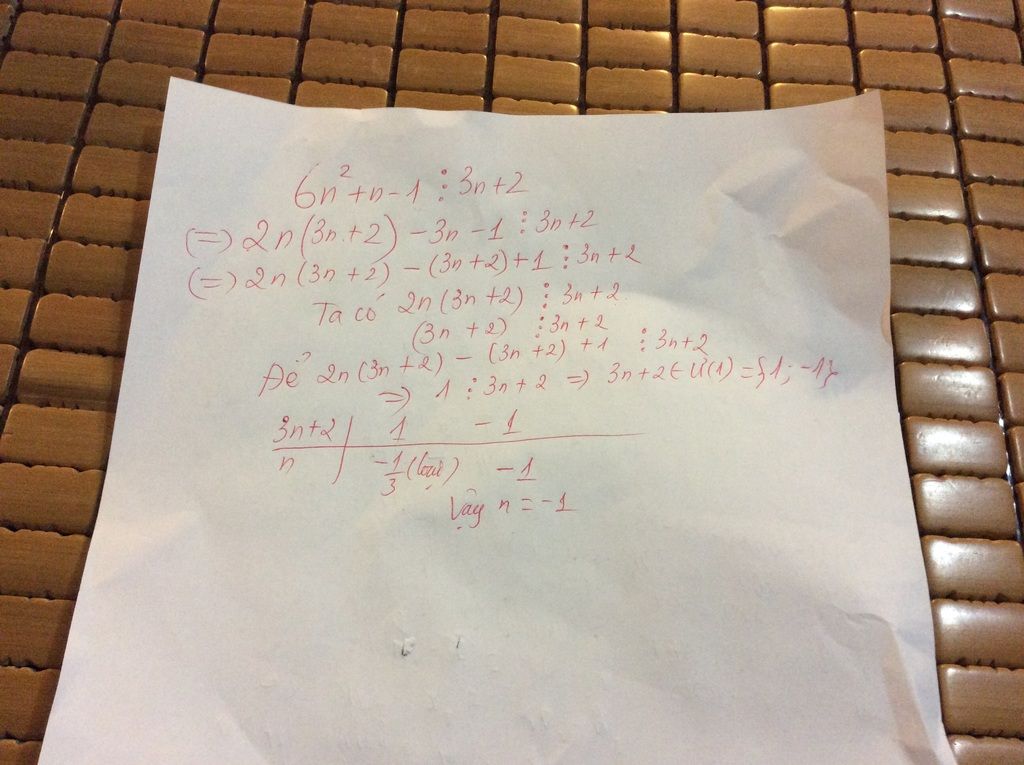 6n² + n - 1 ⋮ 3n+2
(=) 2n(3n+2) - 3n - 1 ⋮ 3n+2
(=) 2n(3n+2) - (3n+2) + 1 ⋮ 3n+2
Ta có 2n(3n+2) ⋮ 3n+2.
(3n+2) ⋮ 3n+2
Để 2n(3n+2) - (3n+2) + 1 ⋮ 3n+2
=> 1 ⋮ 3n+2 => 3n+2 ∈ Ư(1) = {1; -1}
3n+2 | 1 -1
n | -1/3 (loại) -1
Vậy n = -1